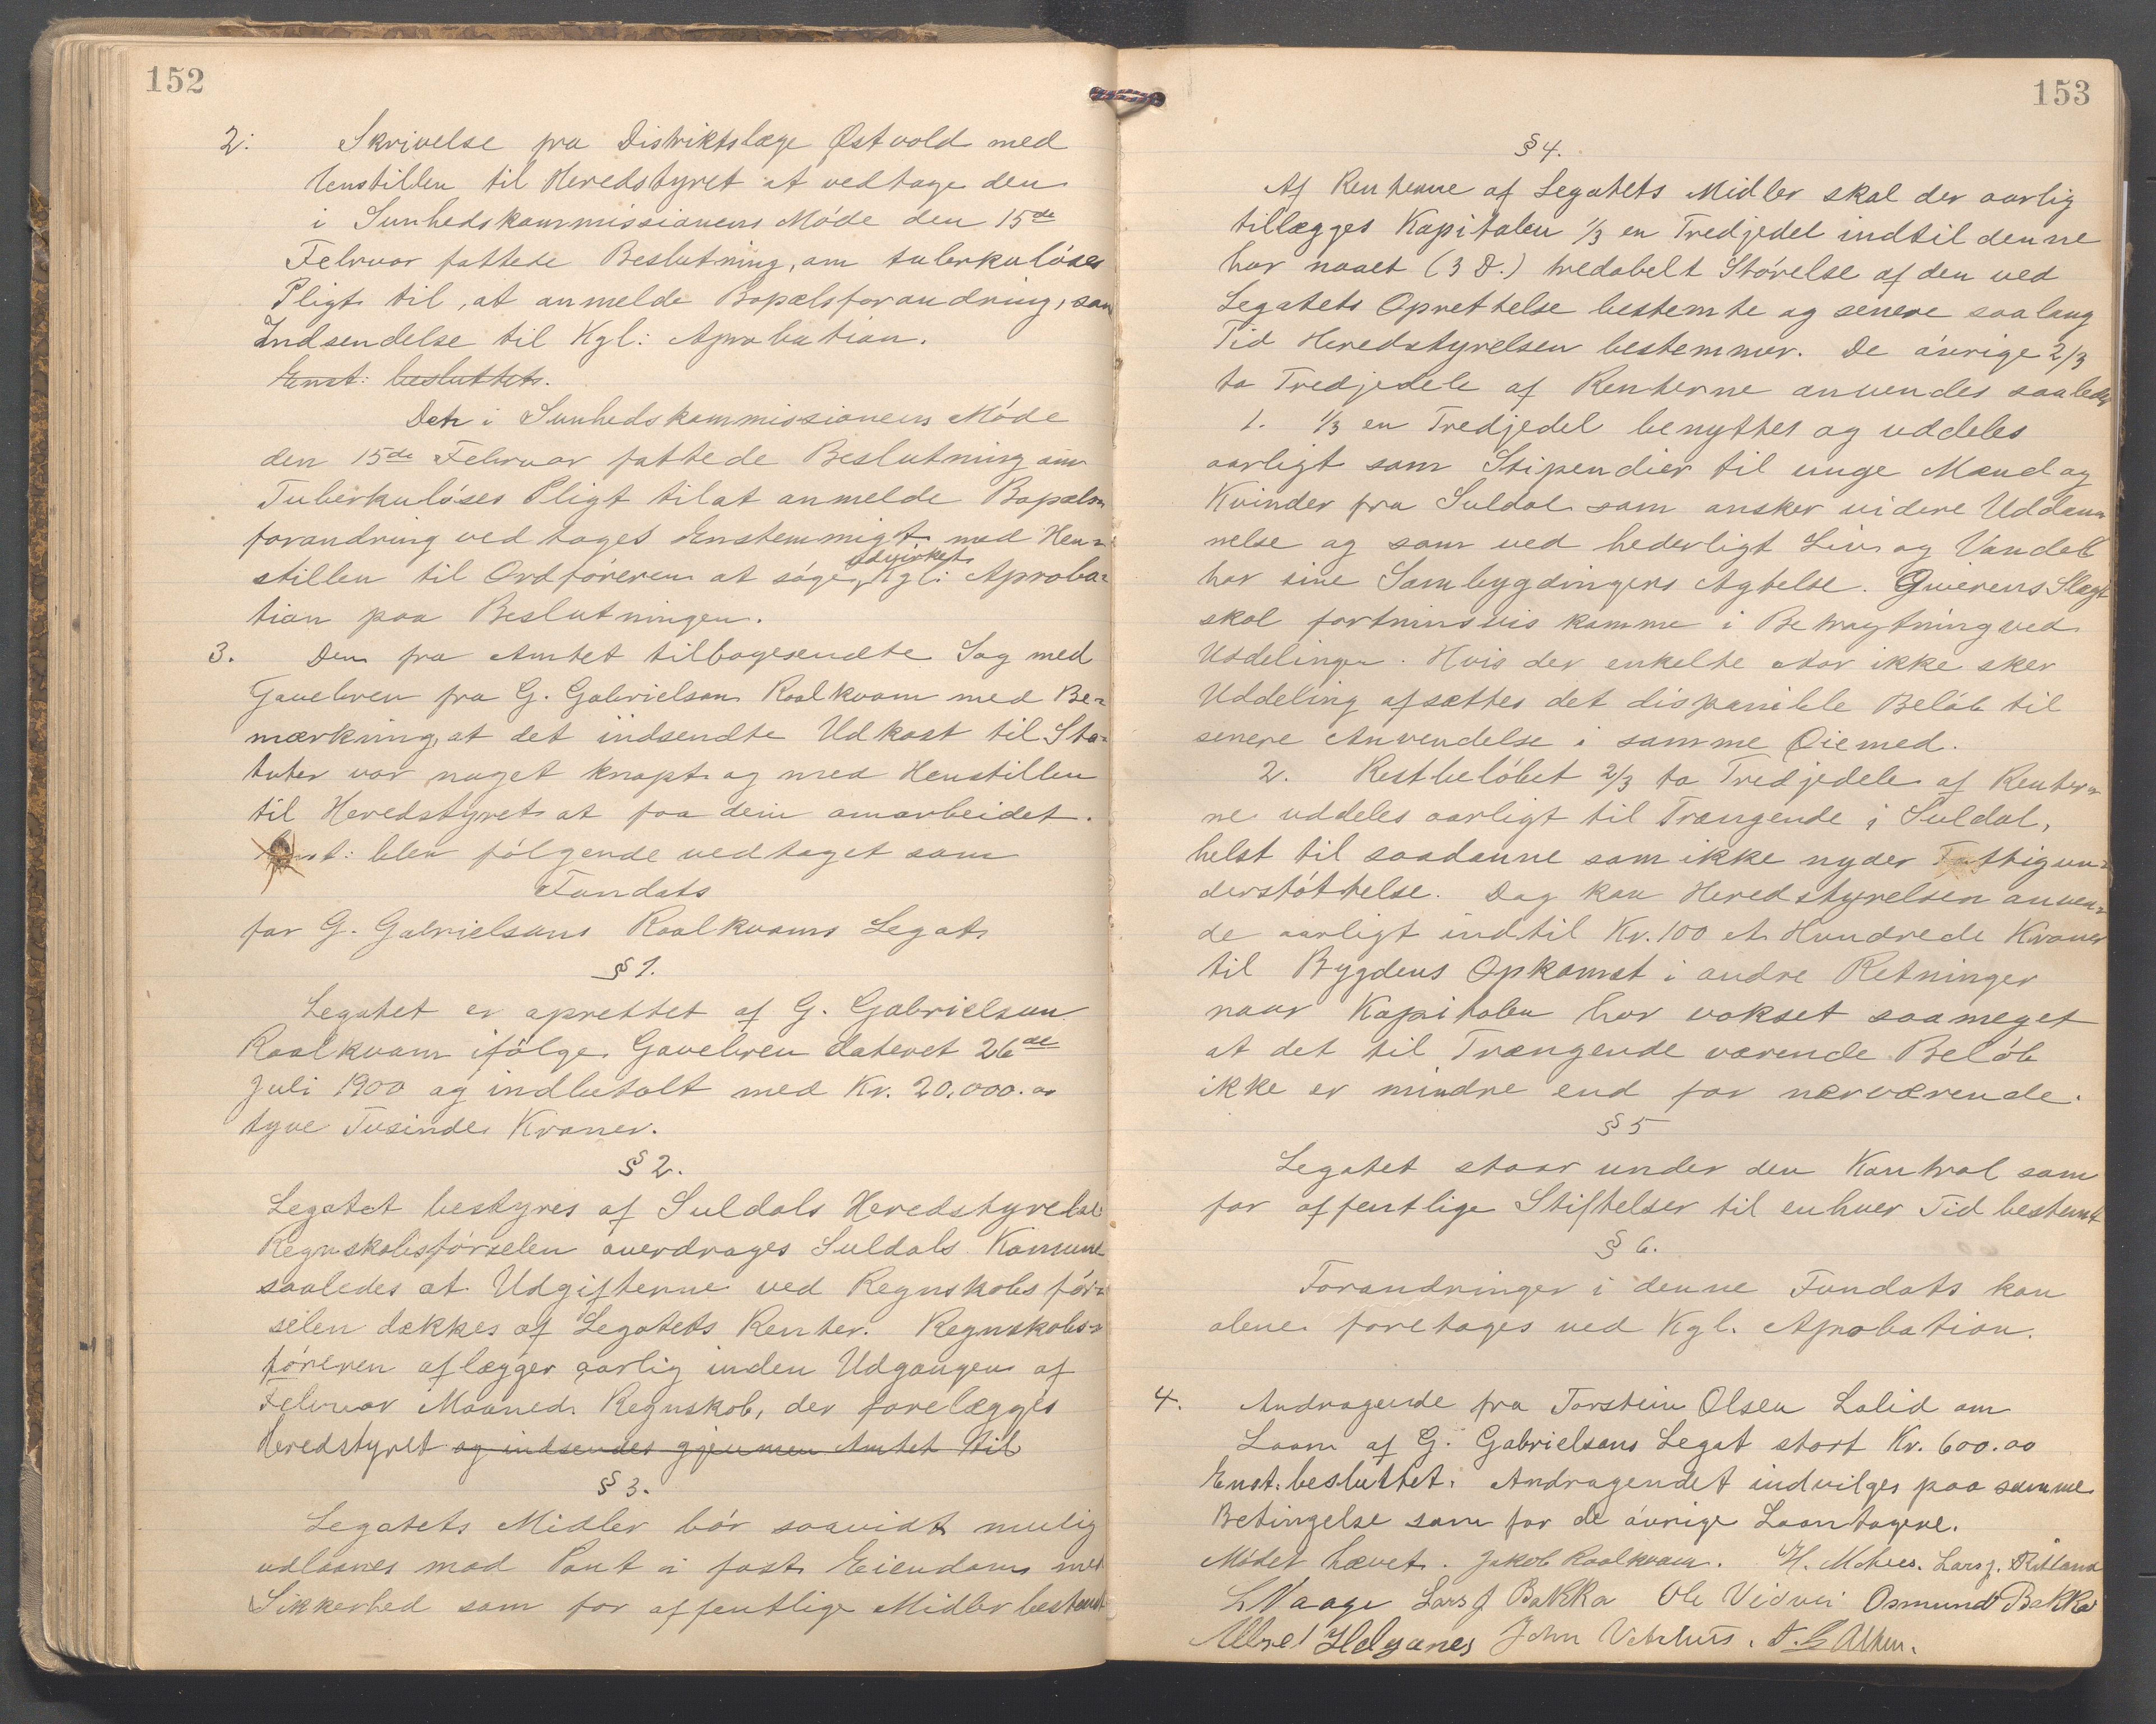 152
2. Skrivelse fra Distriktslæge Østvold med
Henstillen til Heredstyret at vedtage den
i Sunhedskommissionens Møde den 15de
Februar fattede Beslutning, om tuberkuløses
Pligt til, at anmelde Bopælsforandring, sam
Indsendelse til Kgl: Aprobation.
Enst: besluttet.
Den i Sunhedskommissionens Møde
den 15de Februar fattede Beslutning om
Tuberkuløses Pligt tilat anmelde Bopæls=
forandring vedtages Enstemmigt med Hen=
stillen til Ordføreren at søge udvirket Kgl: Aproba=
tion paa Beslutningen.
3. Den fra Amtet tilbagesendte Sag med
Gavebrev fra G. Gabrielson Roalkvam med Be=
mærkning, at det indsendte Udkast til Sta=
tuter var noget knapt og med Henstillen
til Heredstyret at faa dem omarbeidet.
Enst: blev følgende vedtaget som
Fundats
for G. Gabrielsons Roalkvams Legat
§ 1.
Legatet er oprettet af G. Gabrielson
Roalkvam ifølge Gavebrev dateret 26de
Juli 1900 og indbetalt med Kr. 20.000.00
tyve Tusinde Kroner.
§ 2.
Legatet bestyres af Suldals Heredstyrelse
Regnskabsførselen overdrages Suldals Komune
saaledes at Udgifterne ved Regnskabsfør=
selen dækkes af Legatets Renter. Regnskabs=
føreren aflægger aarlig inden Udgangen af
Februar Maaned Regnskab, der forelægges
Heredstyret og indsendes gjennem Amtet til
§ 3.
Legatets Midler bør saavidt mulig
udlaanes mod Pant i fast Eiendom med
Sikkerhed som for offentlige Midler bestemt
153
§ 4.
Af Renterne af Legatets Midler skal der aarlig
tillægges Kapitalen 1/3 en Tredjedel indtil denne
har naaet (3 D.) tredobelt Størelse af den ved
Legatets Oprettelse bestemte og senere saalang
Tid Heredstyrelsen bestemmer. De øvrige 2/3
to Tredjedele af Renterne anvendes saaledes
1. 1/3 en Tredjedel benyttes og uddeles
aarligt som Stipendier til unge Mænd og
Kvinder fra Suldal som ønsker videre Uddan
nelse og som ved hederligt Liv og Vandel
har sine Sambygdingers Agtelse. Giverens Slægt
skal fortrinsvis komme i Betragtning ved
Uddelingen. Hvis der enkelte Aar ikke sker
Uddeling afsættes det disponible Beløb til
senere Anvendelse i samme Øiemed.
2. Restbeløbet 2/3 to Tredjedele af Renter=
ne uddeles aarligt til Trængende i Suldal,
helst til saadanne som ikke nyder Fattigun=
derstøttelse. Dog kan Heredstyrelsen anven=
de aarligt indtil Kr. 100 et Hundrede Kroner
til Bygdens Opkomst i andre Retninger
naar Kapitalen har vokset saameget
at det til Trængende værende Beløb
ikke er mindre end for nærværende.
§ 5
Legatet staar under den Kontrol som
for offentlige Stiftelser til enhver Tid bestemt
§ 6.
Forandringer i denne Fundats kan
alene foretages ved Kgl. Aprobation.
4. Andragende fra Torstein Olsen Lalid om
Laan af G. Gabrielsons Legat stort Kr. 600.00
Enst. besluttet. Andragendet indvilges paa samme
Betingelse som for de øvrige Laantagere.
Mødet hævet. Jakob Roalkvam. H. Mehus. Lars J. Ritland
L Vaage Lars J Bakka Ole Vidvei Osmund Bakka
Helganes John Vetrhus.